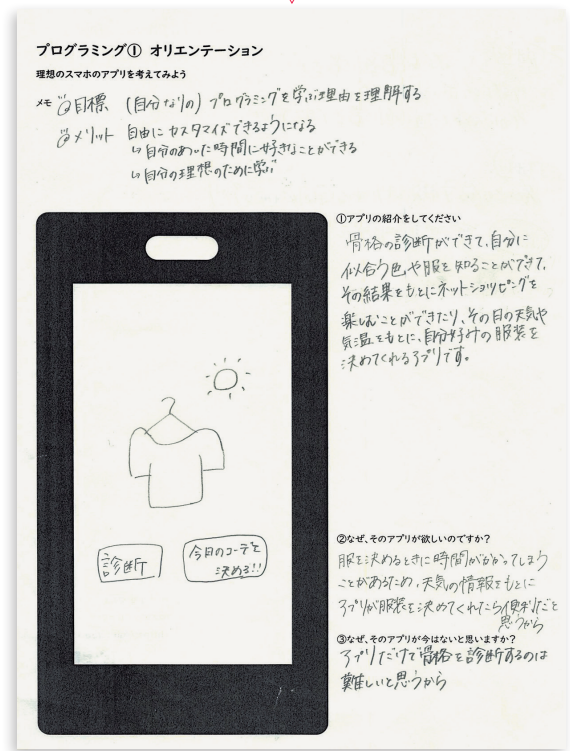 プログラミング① オリエンテーション
理想のスマホのアプリを考えてみよう
メモ 目標 (自分なりの) プログラミングを学ぶ理由を理解する
メリット 自由にカスタマイズできるようになる
↳自分のあいた時間に好きなことができる
↳自分の理想のために学ぶ
①アプリの紹介をしてください
骨格の診断ができて、自分に
似合う色や服を知ることができて、
その結果をもとにネットショッピングを
楽しむことができたり、その日の天気や
気温をもとに、自分好みの服装を
決めてくれるアプリです。
診断
今日のコーデを
決める!!
②なぜ、そのアプリが欲しいのですか?
服を決めるときに時間がかかってしまう
ことがあるため、天気の情報をもとに
アプリが服装を決めてくれたら便利だと
思うから
③なぜ、そのアプリが今はないと思いますか?
アプリだけで骨格を診断するのは
難しいと思うから